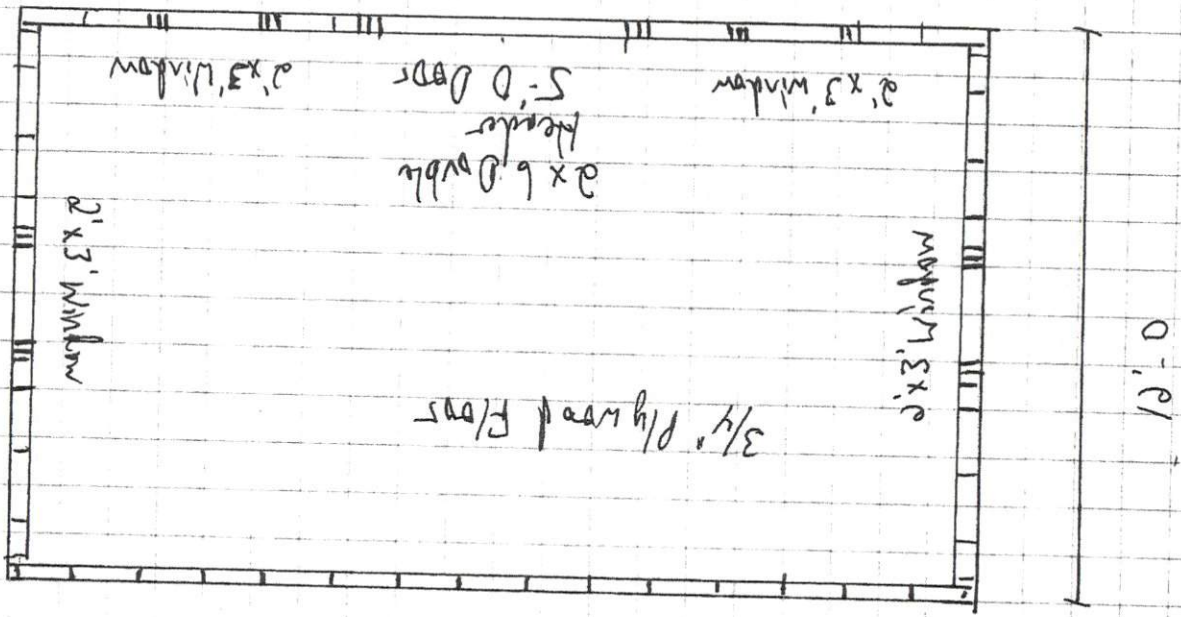 12'-0
3/4" Plywood Floor
2'x3' Window
2'x3' Window
2x6 Double
Header
2'x3' Window
5'-0 Door
2'x3' Window